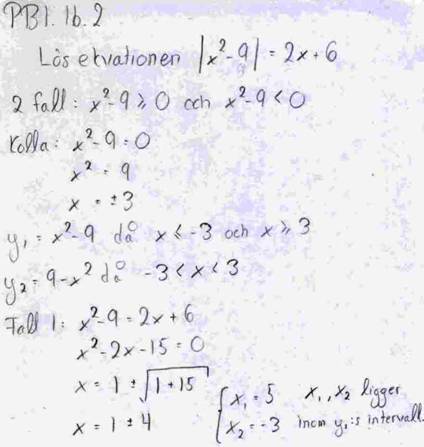 PB1.1b.2
Lös ekvationen |x²-9| = 2x+6
2 fall: x²-9 ≥ 0 och x²-9 < 0
Kolla: x²-9 = 0
x² = 9
x = ±3
y₁ = x²-9 då x ≤ -3 och x ≥ 3
y₂ = 9-x² då -3 < x < 3
Fall 1: x²-9 = 2x+6
x²-2x-15 = 0
x = 1 ± √(1+15)
x = 1 ± 4
{ x₁ = 5 x₁, x₂ ligger
x₂ = -3 inom y₁:s intervall